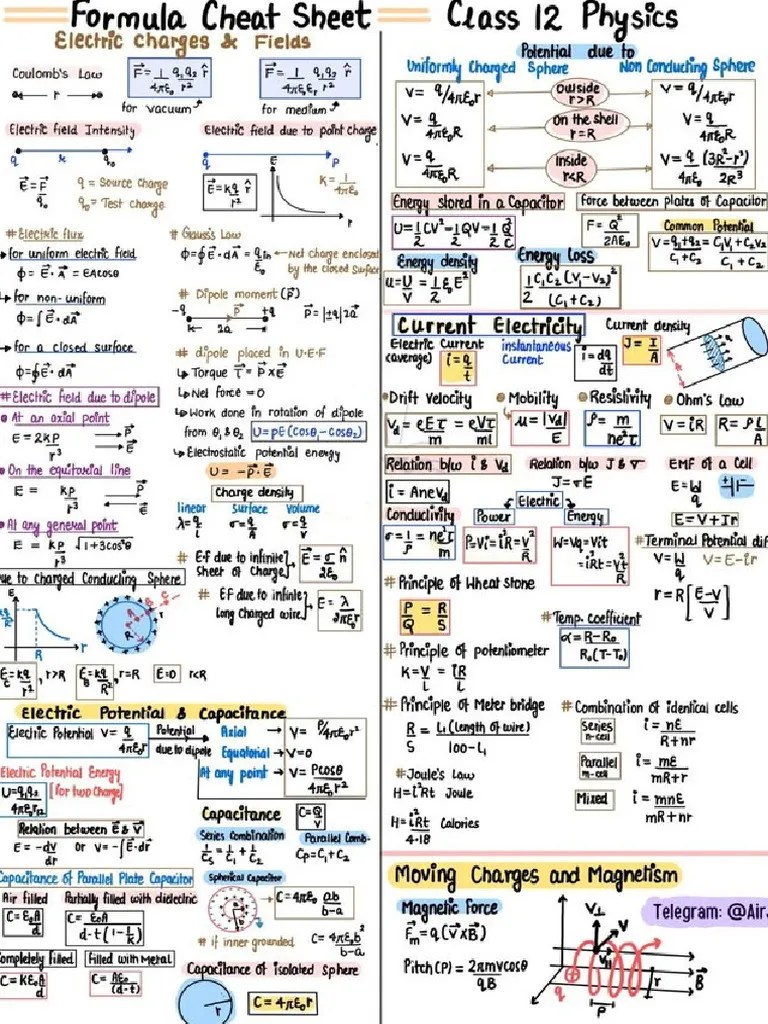 Formula Cheat Sheet
Class 12 Physics
Electric Charges & Fields
Coulomb's Law
r
F⃗ = 1/4πε₀ q₁q₂/r² r̂
for vacuum
F⃗ = 1/4πε₀εᵣ q₁q₂/r² r̂
for medium
Electric field Intensity
q r q₀
E⃗ = F⃗/q₀
q = Source charge
q₀ = Test charge
Electric field due to point charge
q P
E⃗ = kq/r² r̂
E
r
K = 1/4πε₀
# Electric flux
for uniform electric field
Φ = E⃗·A⃗ = EACosθ
for non-uniform
Φ = ∫E⃗·dA⃗
for a closed surface
Φ = ∮E⃗·dA⃗
# Gauss's Law
Φ = ∮E⃗·dA⃗ = qin/ε₀
Net charge enclosed
by the closed Surface
# Dipole moment (P⃗)
-q P⃗ +q
2a
P⃗ = |±q|2a⃗
# dipole placed in U·E·F
Torque τ⃗ = P⃗×E⃗
Net force = 0
Work done in rotation of dipole
from θ₁ & θ₂ U = PE(cosθ₁-cosθ₂)
Electrostatic potential energy
U = -P⃗·E⃗
# Electric field due to dipole
At an axial point
E = 2KP/r³
P⃗
E⃗
On the equitorial line
E = KP/r³
P⃗
E⃗
At any general point
E = KP/r³ √1+3cos²θ
Charge density
linear Surface Volume
λ = q/L σ = q/A σ = q/V
# E·F due to infinite
Sheet of Charge
E⃗ = σ/2ε₀ n̂
# E·F due to infinite
long Charged wire
E = λ/2πε₀r
ue to charged Conducting Sphere
E
R r
E = kq/r², r>R
E = kq/R², r=R
E=0 r<R
Electric Potential & Capacitance
Electric Potential V = q/4πε₀r
Potential
due to dipole
Axial V = P/4πε₀r²
Equatorial V=0
At any point V = Pcosθ/4πε₀r²
Electric Potential Energy
U = q₁q₂/4πε₀r₁₂
[for two charge]
Relation between E⃗ & V⃗
E = -dV/dr or V = -∫E⃗·dr⃗
Capacitance
C = Q/V
Series combination
1/Cs = 1/C₁ + 1/C₂
Parallel Comb-
Cp = C₁+C₂
Capacitance of Parallel Plate Capacitor
Air filled
C = ε₀A/d
Partially filled with dielectric
C = ε₀A/d-t(1-1/K)
Completely filled
C = Kε₀A/d
Filled with Metal
C = Aε₀/(d-t)
Spherical Capacitor
C = 4πε₀ ab/b-a
# if inner grounded
C = 4πε₀b²/b-a
Capacitance of isolated sphere
r
C = 4πε₀r
Potential due to
Uniformly Charged Sphere
Non Conducting Sphere
V = q/4πε₀r
outside
r>R
V = q/4πε₀r
V = q/4πε₀R
on the shell
r=R
V = q/4πε₀R
V = q/4πε₀R
Inside
r<R
V = q/4πε₀ (3R²-r²)/2R³
Energy stored in a Capacitor
U = 1/2 CV² = 1/2 QV = 1/2 Q²/C
Force between plates of Capacitor
F = Q²/2Aε₀
Common Potential
V = q₁+q₂/C₁+C₂ = C₁V₁+C₂V₂/C₁+C₂
Energy density
u = U/V = 1/2 ε₀E²
Energy loss
1/2 C₁C₂(V₁-V₂)²/(C₁+C₂)
Current Electricity
Electric Current
(average)
i = q/t
instantaneous
Current
i = dq/dt
Current density
J = I/A
Drift Velocity
Vd = eEτ/m = eVτ/ml
Mobility
μ = |Vd|/E
Resistivity
ρ = m/ne²τ
Ohm's law
V = iR
R = ρL/A
Relation b/w i & Vd
i = AneVd
Relation b/w J & σ
J = σE
EMF of a Cell
E = W/q
E = V+Ir
Conductivity
σ = 1/ρ = ne²τ/m
Electric
Power
P = Vi = i²R = V²/R
Energy
W = Vq = Vit
= i²Rt = V²t/R
# Terminal Potential dif
V = W/q V = E-ir
r = R[E-V/V]
# Principle of Wheat stone
P/Q = R/S
# Temp. coefficient
α = R-R₀/R₀(T-T₀)
# Principle of potentiometer
K = V/L = iR/L
# Principle of Meter bridge
R/S = L₁(length of wire)/100-L₁
# Combination of identical cells
Series
n-cell
i = nE/R+nr
Parallel
m-cell
i = mE/mR+r
Mixed
i = mnE/mR+nr
# Joule's Law
H = i²Rt Joule
H = i²Rt/4·18 Calories
Moving Charges and Magnetism
Magnetic Force
F⃗m = q(V⃗×B⃗)
Pitch (P) = 2πmvcosθ/qB
Telegram: @Air
V⊥
V
V∥
q
r
B⃗
P